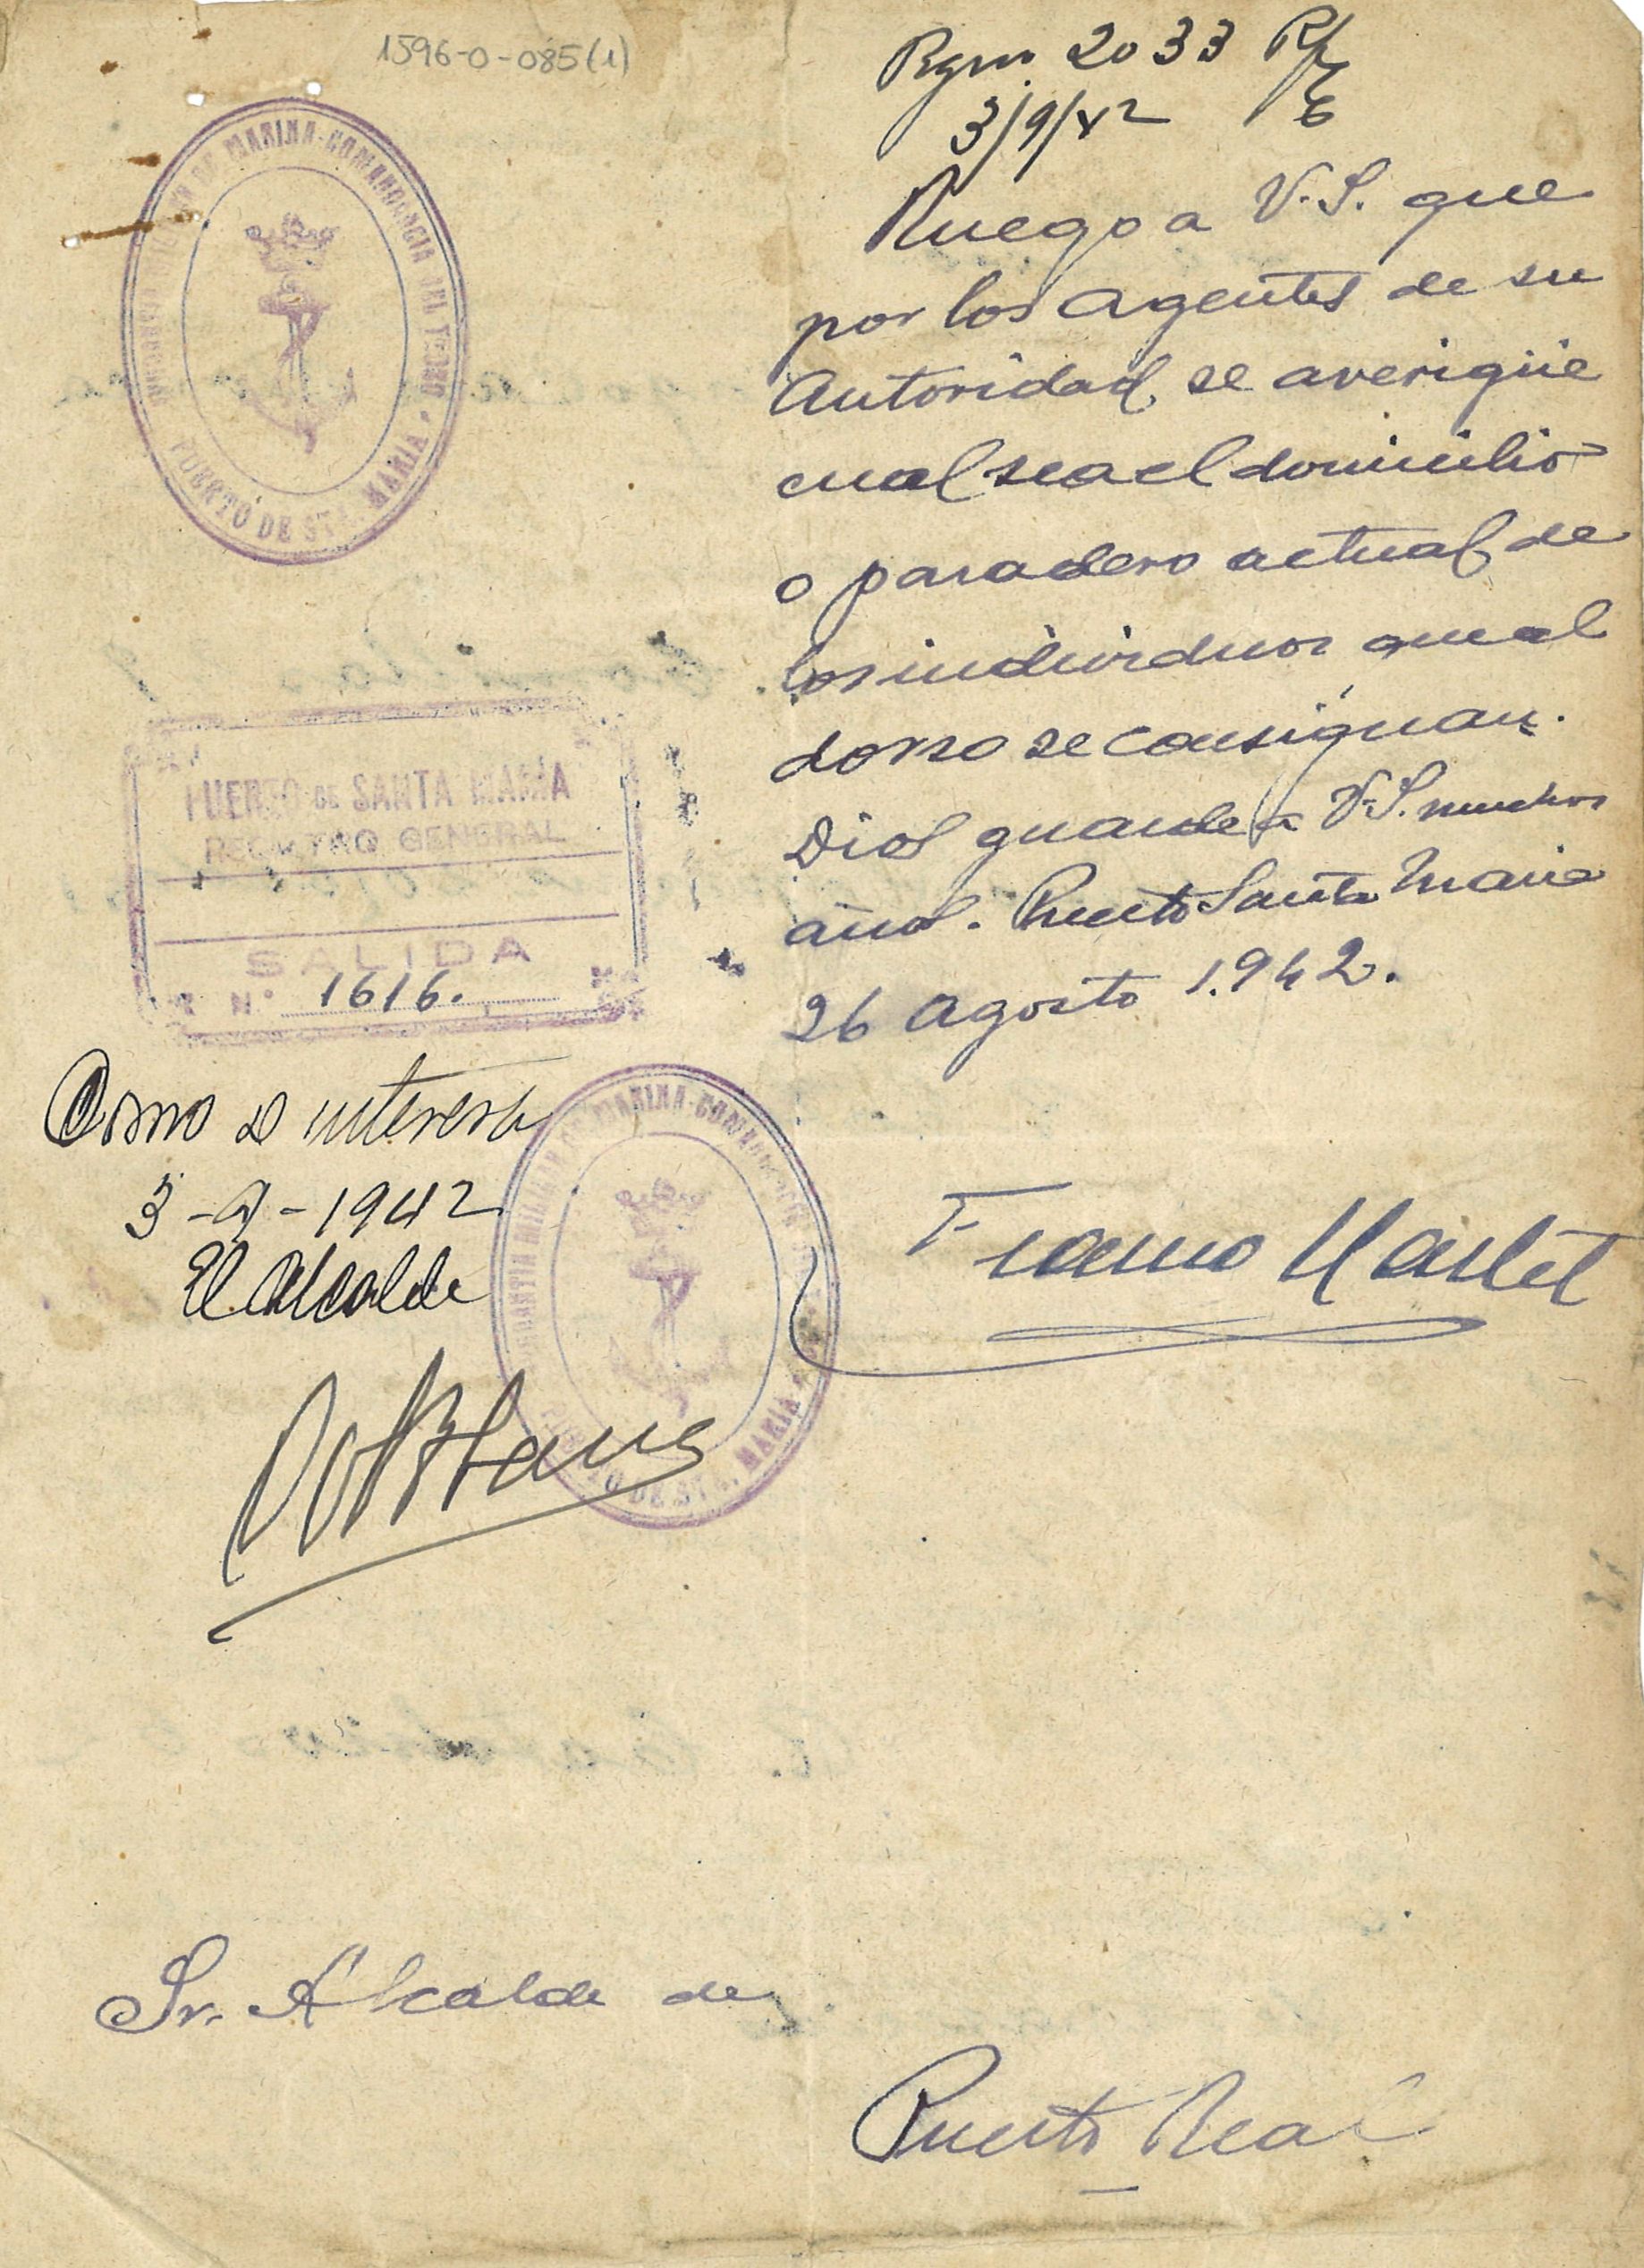 1596-0-085(1)
Rgm. 2033
3/9/42 6
Ruego a V.S. que
por los Agentes de su
Autoridad, se averigüe
cual sea el domicilio
o paradero actual de
los individuos que al
dorso se consignan.
Dios guarde a V.S. muchos
años. Puerto Santa Maria
26 Agosto 1.942.
DE MARINA-COMANDANCIA DEL TERCIO
PUERTO DE STA. MARIA
PUERTO DE SANTA MARIA
REGISTRO GENERAL
SALIDA
N.° 1616.
Como se interesa
3-9-1942
El Alcalde
MILITAR DE MARINA-COMANDANCIA
PUERTO DE STA. MARIA
Sr. Alcalde de
Puerto Real